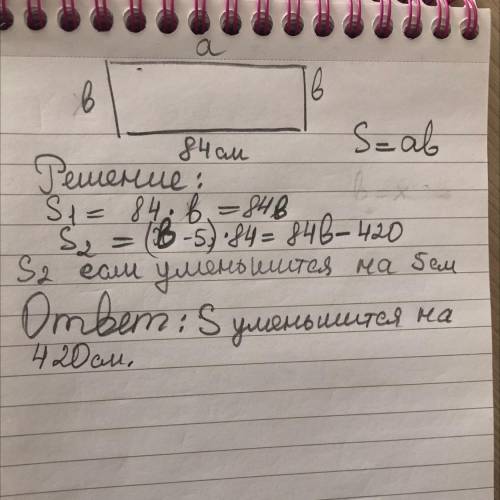 a
в в
84см
S = ab
Решение:
S1 = 84 · в = 84в
S2 = (в - 5) · 84 = 84в - 420
S2 если уменьшится на 5см
Ответ: S уменьшится на
420см.